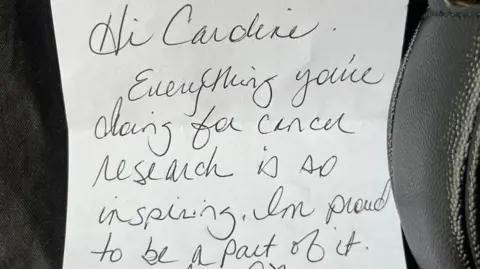 Hi Caroline.
Everything you're
doing for cancer
research is so
inspiring. I'm proud
to be a part of it.